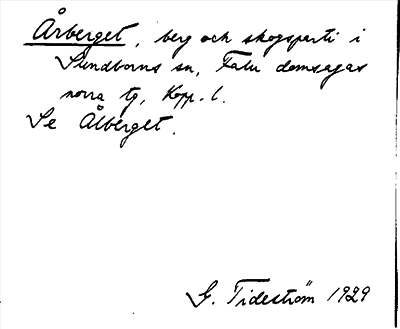 Årberget, berg och skogsparti i
Sundborns sn, Falu domsagas
norra tg, Kopp. l.
Se Ålberget.
G. Tideström 1929